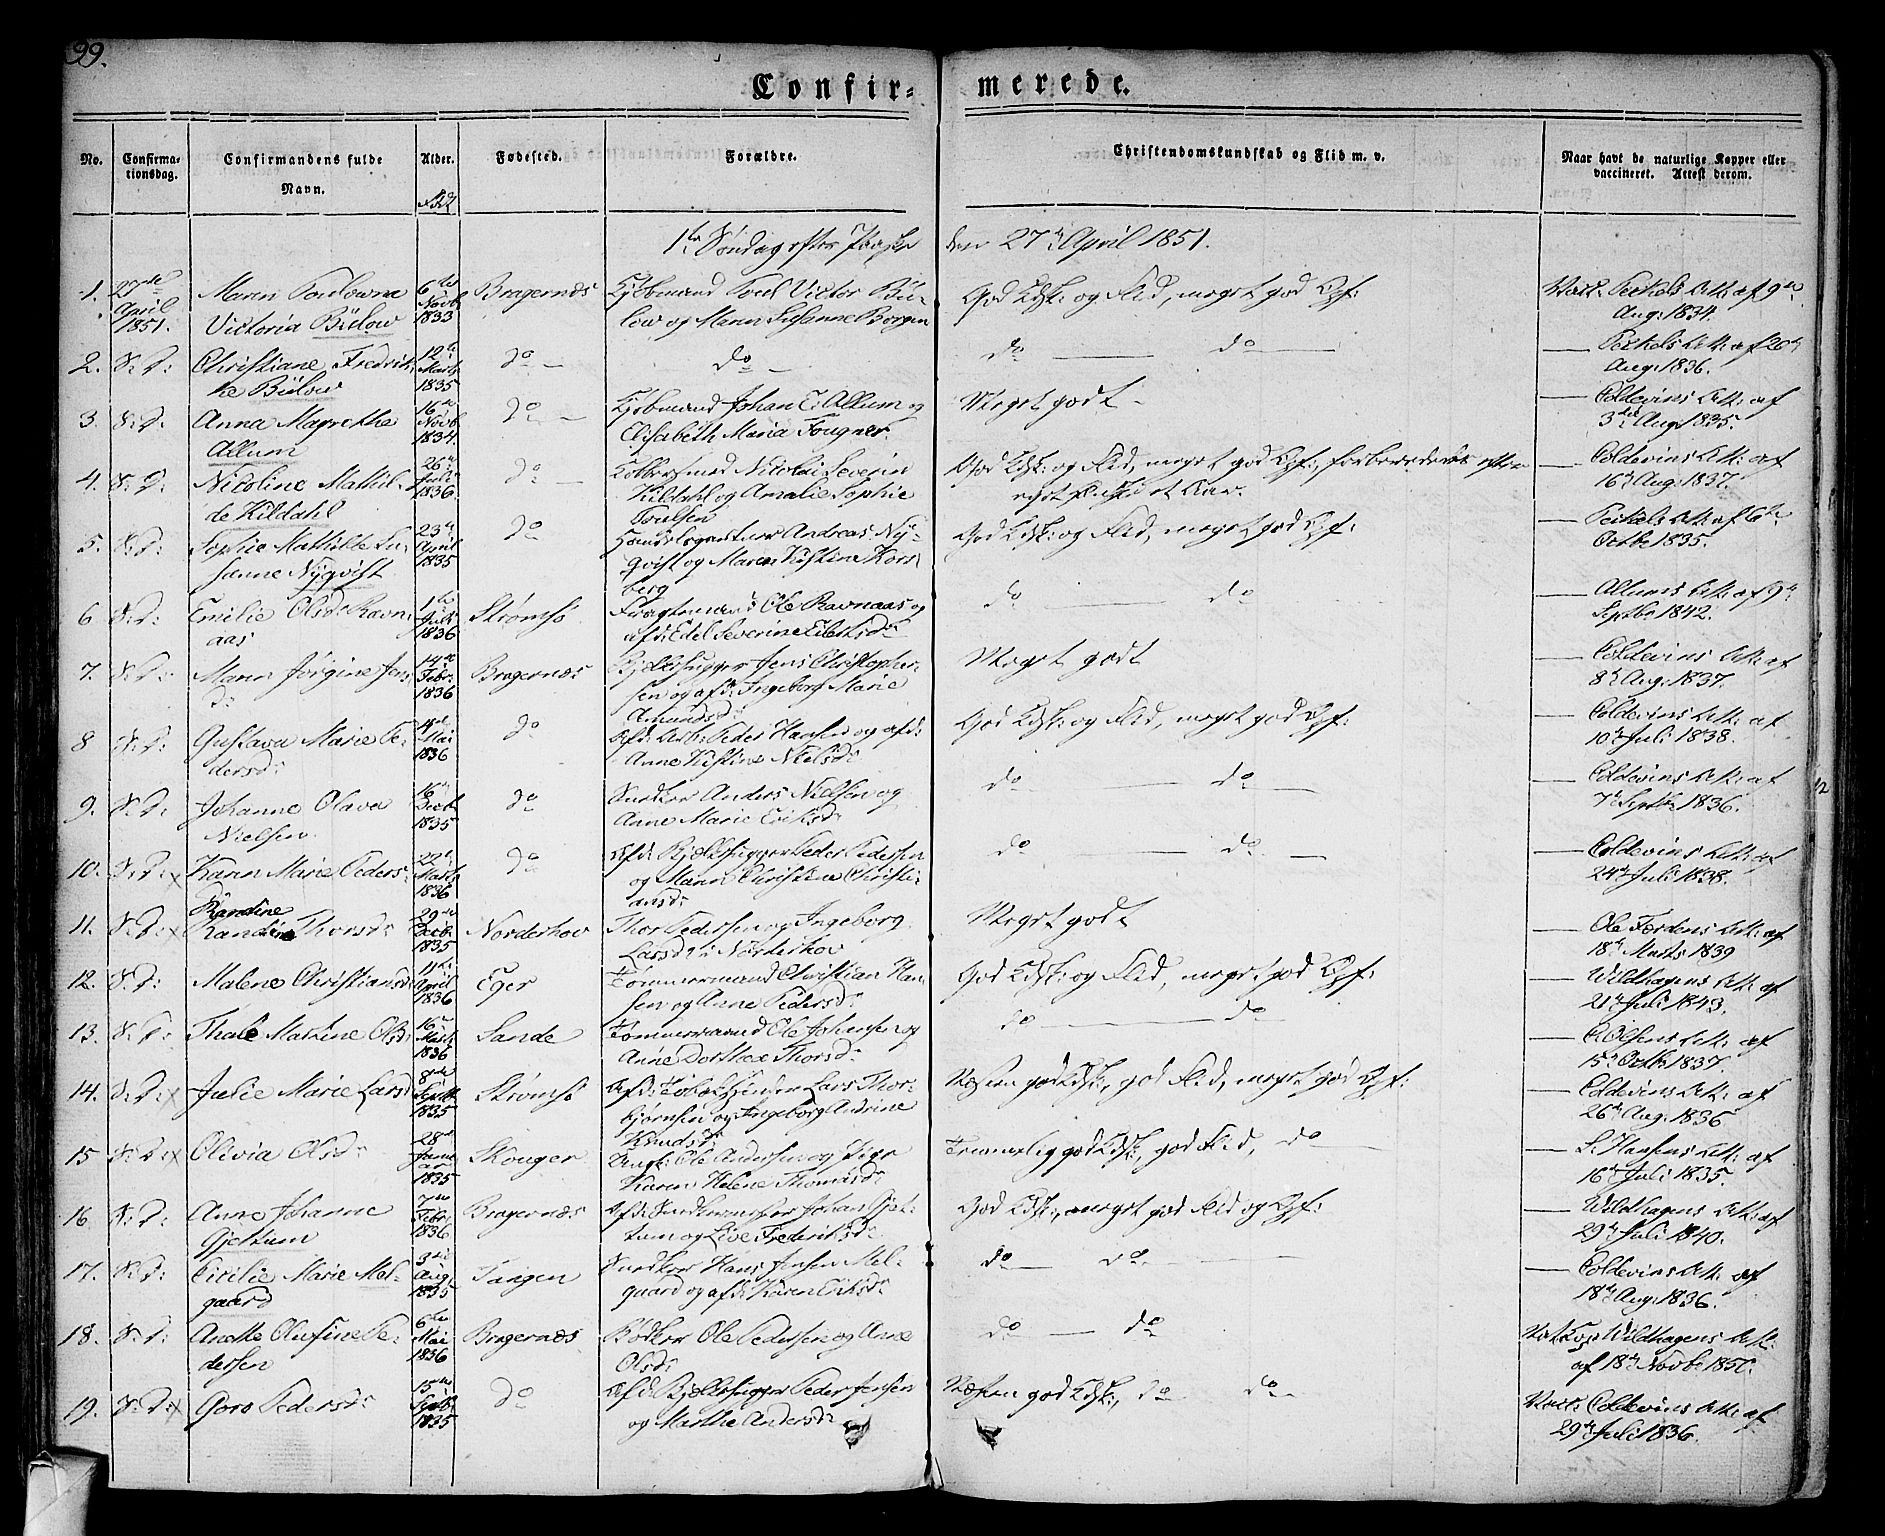 99.
Confir- merede.
No.
Confirma-
tionsdag.
Confirmandens fulde
Navn.
Alder.
Fødested.
Forældre.
Christendomskundskab og Flid m. v.
Naar havt de naturlige Kopper eller
vaccineret. Attest derom.
1ste Søndag efter Paaske den 27de April 1851.
1. 27de April 1851. Maren Poulowna Victoria Bülow 6te Novb. 1833 Bragernæs Kjøbmand Poul Victor Bülow og Maren Susanne Borgen God Kdsk: og Flid, meget god Opf: Vacc. Peckels Att: af 9de Aug: 1834.
2. S: D: Christiane Fredrikke Bülow 12te Marts 1835 do do do do Peckels Att: af 20de Aug: 1836.
3. S: D: Anna Magrethe Allum 16de Novb 1834 do Kjøbmand Johan C: Allum og Elisabeth Maria Fougner. Meget godt Coldevins Att: af 3die Aug: 1835.
4. S: D: Nicoline Mathilde Kildahl 26de Juli 1836 do Kobbersmed Nicolai Severin Kildahl og Amalie Sophie Poulsen God Kdsk: og Flid, meget god Opf:, Coldevins Att: af 16de Aug: 1837.
5. S: D: Sophie Mathilde Susanne Nyqvist 23de April 1835 do Andreas Nyqvist og Maren Kistine Korsberg God Kdsk: og Flid, meget god Opf: Peckels Att: af 6te Octb: 1835.
6 S: D: Emilie Olsd: Ravnaas 1ste Juli 1836 Strømsø Ole Ravnaas og afd: Edel Severine Eilertsd: do do Allums Att: af 9de Septbr 1842.
7. S: D: Maren Jørgine Jensd: 14de Febr: 1836 Bragernæs Bjelkehugger Jens Christophersen og afd: Ingeborg Marie Amundsd: Meget godt Coldevins Att: af 8de Aug: 1837.
8 S: D: Gustava Marie Pedersd: 4de Mai 1836 do Afd: Arb: Peder Hansen og afd: Anne Kistine Nielsd: God Kdsk: og Flid, meget god Opf: Coldevins Att: af 10de Juli 1838.
9. S: D: Johanne Olava Nielsen 16de Decb. 1835 do Snedker Anders Nielsen og Anne Marie Eriksd: do do Coldevins Att: af 7de Septbr 1836.
10. S: D: x Karen Marie Pedersd: 22de Marts 1836 do Afd: Bjelkehugger Peder Pedersen og Maren Christine Christiansd: do do Coldevins Att: af 24de Juli 1838.
11. S: D: x Randine Thorsd: 29de Decb. 1835 Norderhov Thor Pedersen og Ingeborg Larsd: i Norderhov Meget godt Ole Færdens Att: af 18de Marts 1839
12. S: D: Malene Christiansd: 11te April 1836 Eger Tømmermand Christian Hansen og Anne Pedersd: God Kdsk: og Flid, meget god Opf: Wildhagens Att: af 21de Juli 1843.
13. S: D: Thale Maxine Olsd: 16de Marts 1836 Sande Tømmermand Ole Johansen og Anne Dorthea Thorsd: do do Olsens Att: af 15de Octb: 1837.
14. S: D: x Julie Marie Larsd: 8de Septb 1835 Strømsø Afd: Tobakspinder Lars Thorbjørnsen og Ingeborg Andrine Knudsd: Næsten god Kdsk:, god Flid, meget god Opf: Coldevins Att: af 26de Aug: 1836
15 S: D: x Olivia Olsd: 28de Januar 1835 Skouger Ungk: Ole Andersen og Pige Karen Helene Thomasd: Temmelig god Kdsk:, god Flid, do S: Hansens Att: af 16de Juli 1835.
16 S: D: Anne Johanne Gjeltum 7de Febr: 1836 Bragernæs Afd: Johan Gjeltum og Live Frederiksd: God Kdsk:, meget god Flid og Opf: Wildhagens Att: af 29de Juli 1840.
17. S: D: Cicilie Marie Melgaard 3die Aug. 1835 Tangen Snedker Hans Jensen Melgaard og afd: Karen Eriksd: do do Coldevins Att: af 18de Aug: 1836.
18. S: D: Anette Olufine Pedersen 6te Mai 1836 Bragernæs Bødker Ole Pedersen og Anne Olsd: do do Wildhagens Att: af 18de Novb: 1850.
19. S: D: x Goro Pedersd: 15de Septb: 1835 do Afd: Bjelkehugger Peder Jensen og Marthe Andersd: Næsten god Kdsk:, do do Vacc: Coldevins Att: af 29de Juli 1836.